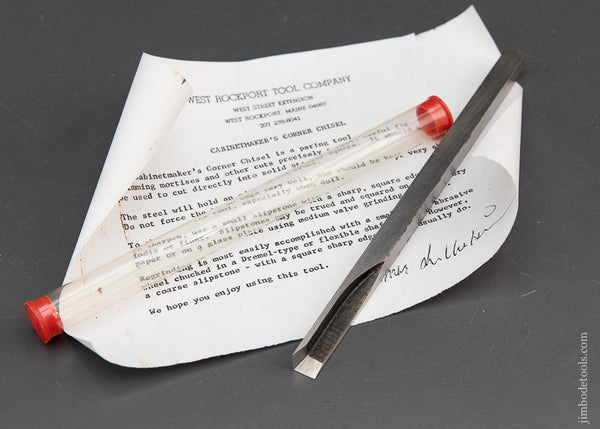 WEST ROCKPORT TOOL COMPANY
WEST STREET EXTENSION
WEST ROCKPORT, MAINE 04865
207 236-8041
CABINETMAKER'S CORNER CHISEL
Cabinetmaker's Corner Chisel is a paring tool useful for
mming mortises and other cuts precisely square. It should
be used to cut directly into solid
The steel will hold an edge very well, and should be kept very
Do not force the tool, especially when dull.
To sharpen, use a small slipstone with a sharp, square edge dry
India or finer. Slipstones may be trued and squared on
paper or on a glass plate using medium valve grinding
Regrinding is most easily accomplished with a small abrasive
wheel chucked in a Dremel-type or flexible shaft However,
a coarse slipstone - with a square sharp edge usually do.
We hope you enjoy using this tool.
jimbodetools.com